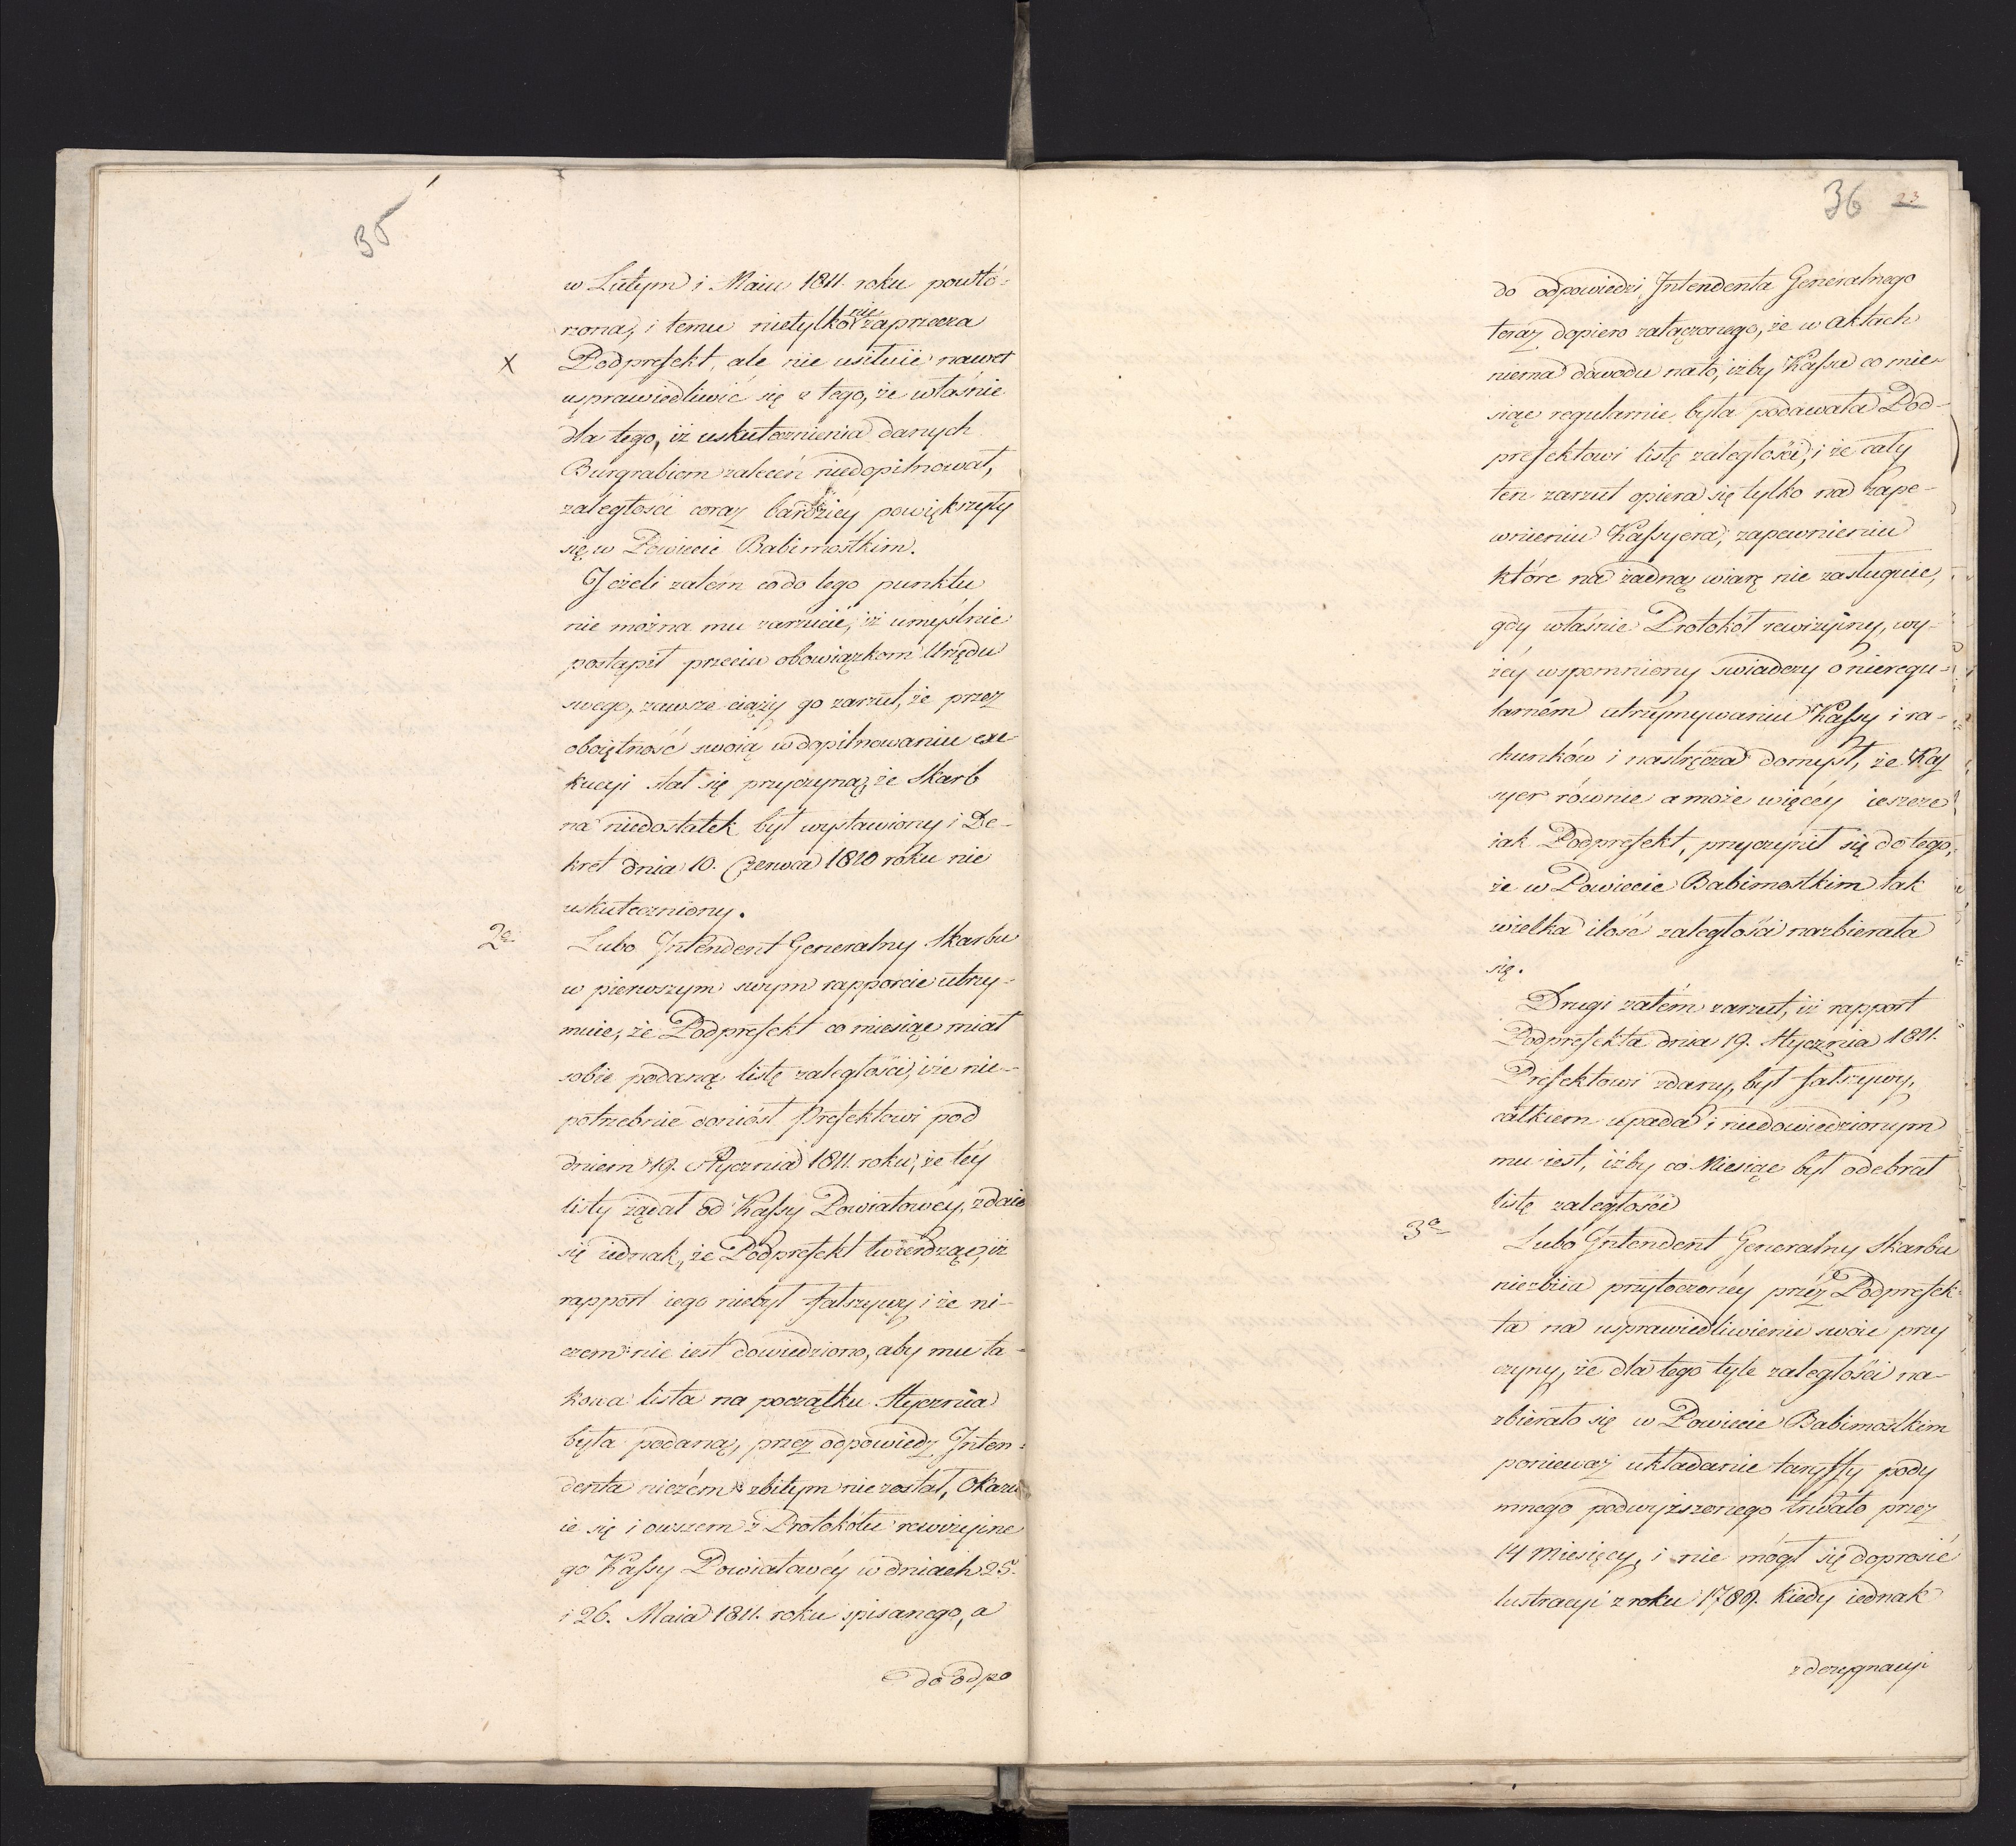 35
w Lutym i Maiu 1811. roku powtó-
rzona, i temu nietylko nie zaprzecza
x Podprefekt, ale nie usiłuie nawet
usprawiedliwić się z tego, że właśnie
dla tego, iż uskutecznienia danych
Burgrabiom zaleceń niedopilnował,
zaległości coraz bardziéy powiększyły
się w Powiecie Babimostkim.
Jeżeli zatém co do tego punktu
nie można mu zarzucić, iż umyślnie
postąpił przeciw obowiązkom Urzędu
swego, zawsze ciąży go zarzut, że przez
oboiętność swoią w dopilnowaniu exe-
kucyi stał się przyczyną, że Skarb
na niedostatek był wystawiony i De-
kret dnia 10. Czerwca 1810 roku nie
uskuteczniony.
2o Lubo Intendent Generalny Skarbu
w pierwszym swym rapporcie utrzy-
muie, że Podprefekt co miesiąc miał
sobie podaną listę zaległości, i że nie-
potrzebnie doniósł Prefektowi pod
dniem 19. Stycznia 1811. roku, że téy
listy żądał od Kassy Powiatowéy, zdaie
się iednak, że Podprefekt twierdząc, iż
rapport iego niebył fałszywy i że ni-
czem nie iest dowiedziono, aby mu ta-
kowa lista na początku Stycznia
była podaną, przez odpowiedz Inten-
denta niczém zbitym nie został, Okazu
ie się i owszem z Protokółu rewizyjne
go Kassy Powiatowéy w dniach 25.
i 26. Maia 1811. roku spisanego, a
do odpo
36 23
do odpowiedzi Intendenta Generalnego
teraz dopiero załączonego, że w aktach
niema dowodu na to, iżby Kassa co mie-
siąc regularnie była podawała Pod-
prefektowi listę zaległości, i że cały
ten zarzut opiera się tylko na zape-
wnieniu Kassyera, zapewnieniu
które na żadną wiarę nie zasługuie,
gdy właśnie Protokół rewizyiny, wy-
żéy wspomniony świadczy o nieregu-
larném utrzymywaniu Kassy i ra-
chunków i nastręcza domysł, że Kas
syer równie a może więcéy ieszcze
iak Podprefekt, przyczynił się do tego,
że w Powiecie Babimostkim tak
wielka ilość zaległości nazbierała
się.
Drugi zatém zarzut, iż rapport
Podprefekta dnia 19. Stycznia 1811.
Prefektowi zdany, był fałszywy,
całkiem upada i niedowiedzionym
mu iest, iżby co Miesiąc był odebrał
listę zaległości
3o Lubo Intendent Generalny Skarbu
niezbiia przytoczonéy przéz Podprefek-
ta na usprawiedliwienie swoie przy
czyny, że dla tego tyle zaległości na-
zbierało się w Powiecie Babimostkim
ponieważ układanie taryffy pody
mnego podwyższonego trwało przez
14 miesięcy, i nie mógł się doprosić
lustracyi z roku 1789. kiedy iednak
z dezygnacyi